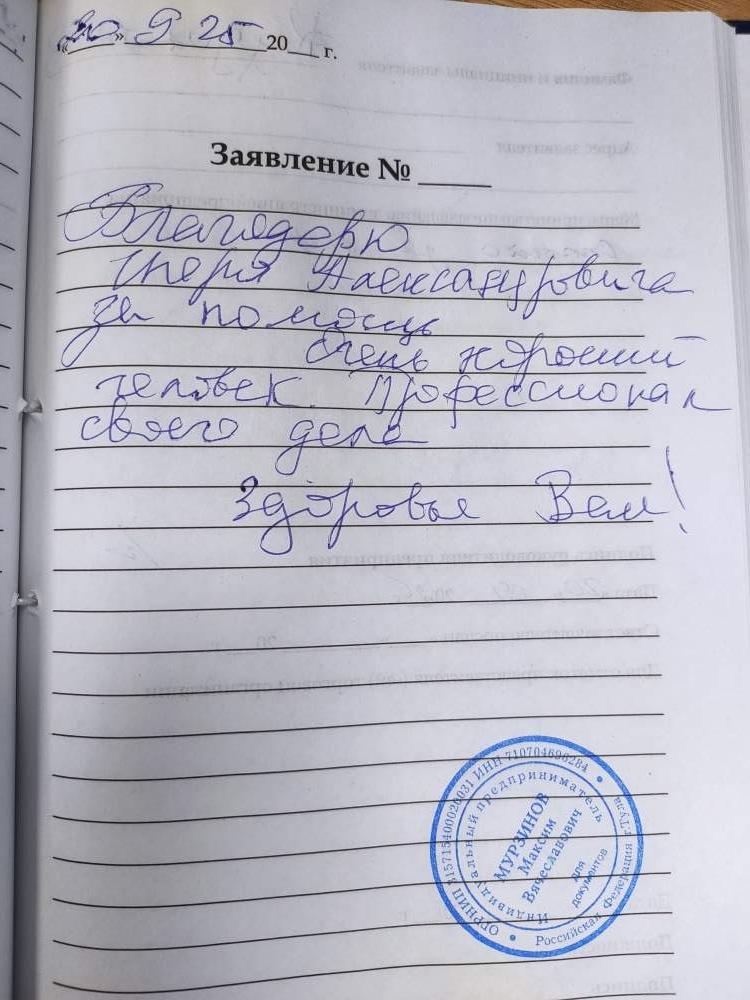 «20» 9 25 20___ г.
Заявление № _____
Благодарю
Игоря Александровича
за помощь
очень хороший
человек. Профессионал
своего дела
Здоровье Вам!
ОГРНИП ИНН 710704696284
Российская Федерация г.Тула
Индивидуальный предприниматель
МУРЗИНОВ
Максим
Вячеславович
для
документов